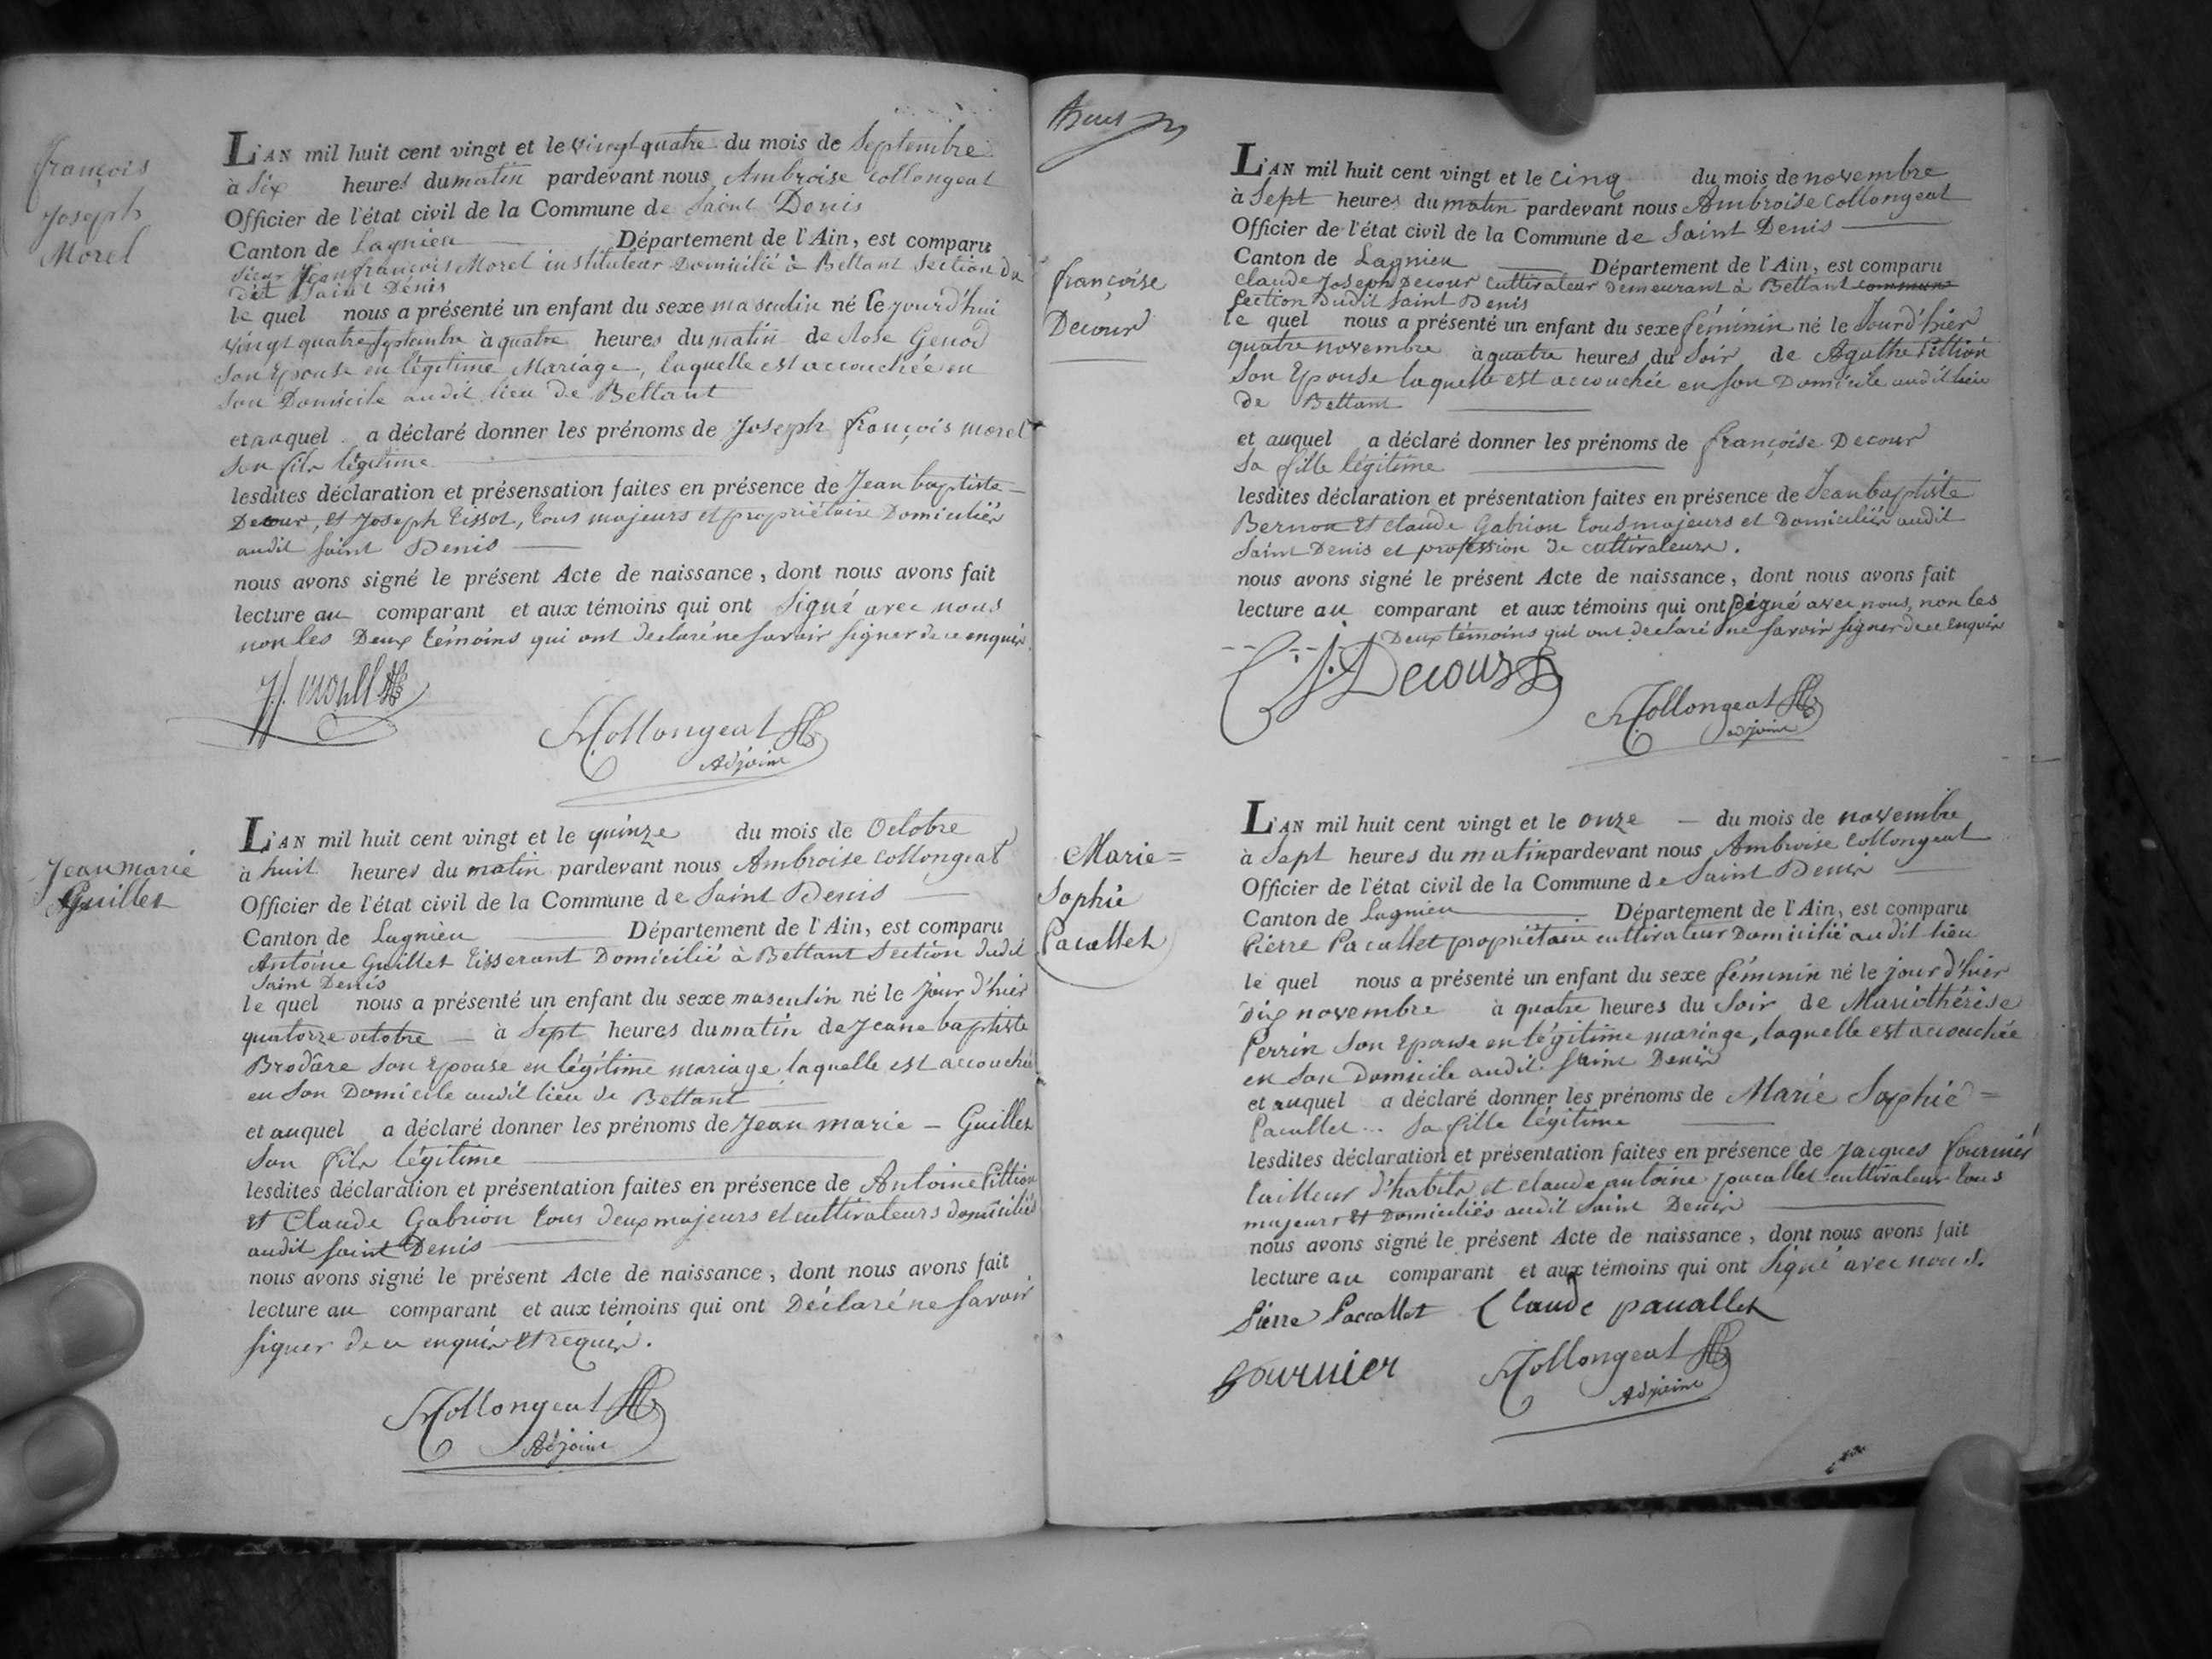 François
Joseph
Morel
L'AN mil huit cent vingt et le vingt quatre du mois de Septembre
à Six heures du matin pardevant nous Ambroise Collongeat
Officier de l'état civil de la Commune de Saint Denis
Canton de Lagnieu Département de l'Ain, est comparu
Sieur Jean françois Morel instituteur Domicilié à Bettant Section du
dit Saint Denis
le quel nous a présenté un enfant du sexe masculin né le jourd'hui
vingt quatre septembre à quatre heures du matin de Rose Genod
Son Epouse en légitime Mariage, laquelle est accouchée en
Son Domicile audit lieu de Bettant
et auquel a déclaré donner les prénoms de Joseph françois morel
Son fils légitime
lesdites déclaration et présensation faites en présence de Jean baptiste
Decour, et Joseph Tissot, tous majeurs et propriétaire Domiciliés
audit Saint Denis
nous avons signé le présent Acte de naissance, dont nous avons fait
lecture au comparant et aux témoins qui ont Signé avec nous
non les Deux témoins qui ont déclaré ne savoir signer de ce enquis
Collongeat
Adjoint
Jean marie
Guillet
L'AN mil huit cent vingt et le quinze du mois de Octobre
à huit heures du matin pardevant nous Ambroise Collongeat
Officier de l'état civil de la Commune de Saint Denis
Canton de Lagnieu Département de l'Ain, est comparu
Antoine Guillet tisserant Domicilié à Bettant Section dudit
Saint Denis
le quel nous a présenté un enfant du sexe masculin né le jour d'hier
quatorze octobre à Sept heures du matin de Jeane baptiste
Brodâre Son Epouse en légitime mariage laquelle est accouchée
en Son Domicile audit lieu de Bettant
et auquel a déclaré donner les prénoms de Jean marie – Guillet
Son fils légitime
lesdites déclaration et présentation faites en présence de Antoine Pittion
et Claude Gabrion tous deux majeurs et cultivateurs domiciliés
audit Saint Denis
nous avons signé le présent Acte de naissance, dont nous avons fait
lecture au comparant et aux témoins qui ont Déclaré ne Savoir
signer de ce enquis et requis.
Collongeat
Adjoint
françoise
Decour
L'AN mil huit cent vingt et le cinq du mois de novembre
à Sept heures du matin pardevant nous Ambroise Collongeat
Officier de l'état civil de la Commune de Saint Denis
Canton de Lagnieu Département de l'Ain, est comparu
Claude Joseph Decour cultivateur demeurant à Bettant commune
Section dudit Saint Denis
le quel nous a présenté un enfant du sexe féminin né le Jourd'hier
quatre novembre à quatre heures du Soir de Agathe Pittion
Son Epouse laquelle est accouchée en Son Domicile audit lieu
de Bettant
et auquel a déclaré donner les prénoms de françoise Decour
Sa fille légitime
lesdites déclaration et présentation faites en présence de Jean baptiste
Bernon et Claude Gabrion tous majeurs et Domiciliés audit
Saint Denis et profession de cultivateurs.
nous avons signé le présent Acte de naissance, dont nous avons fait
lecture au comparant et aux témoins qui ont Signé avec nous, non les
Deux témoins qui ont declaré ne savoir signer de ce enquis
C. J. Decour
Collongeat
adjoint
Marie =
Sophie
Pacallet
L'AN mil huit cent vingt et le onze – du mois de novembre
à Sept heures du matin pardevant nous Ambroise Collongeat
Officier de l'état civil de la Commune de Saint Denis
Canton de Lagnieu Département de l'Ain, est comparu
Pierre Pacallet propriétaire cultivateur Domicilié audit lieu
le quel nous a présenté un enfant du sexe féminin né le jour d'hier
Dix novembre à quatre heures du Soir de Marie thérèse
Perrin Son Epouse en légitime mariage, laquelle est accouchée
en Son Domicile audit Saint Denis
et auquel a déclaré donner les prénoms de Marie Sophie =
Pacallet .. Sa fille légitime
lesdites déclaration et présentation faites en présence de Jacques fournier
tailleur d'habits et claude antoine pacallet cultivateur tous
majeurs et Domiciliés audit Saint Denis
nous avons signé le présent Acte de naissance, dont nous avons fait
lecture au comparant et aux témoins qui ont Signé avec nous.
Pierre Paccallet Claude pacallet
fournier Collongeat
Adjoint